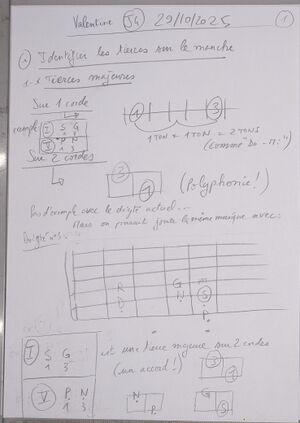 Valentine J4 29/10/2025 1
Identifier les tierces sur le manche
Tierces majeures
Sur 1 corde
exemple
I S G
1 3
V P N
1 3
1 3
1 TON + 1 TON = 2 TONS
(comme Do - Mi)
Sur 2 cordes
3
1
(Polyphonie!)
Pas d'exemple avec le doigté actuel...
Mais on pourrait jouer la même musique avec:
Doigté n°3
R G m
D N S
P
I S G
1 3
est une tierce majeure sur 2 cordes
(un accord!)
3
1
V P N
1 3
N
P
G
S